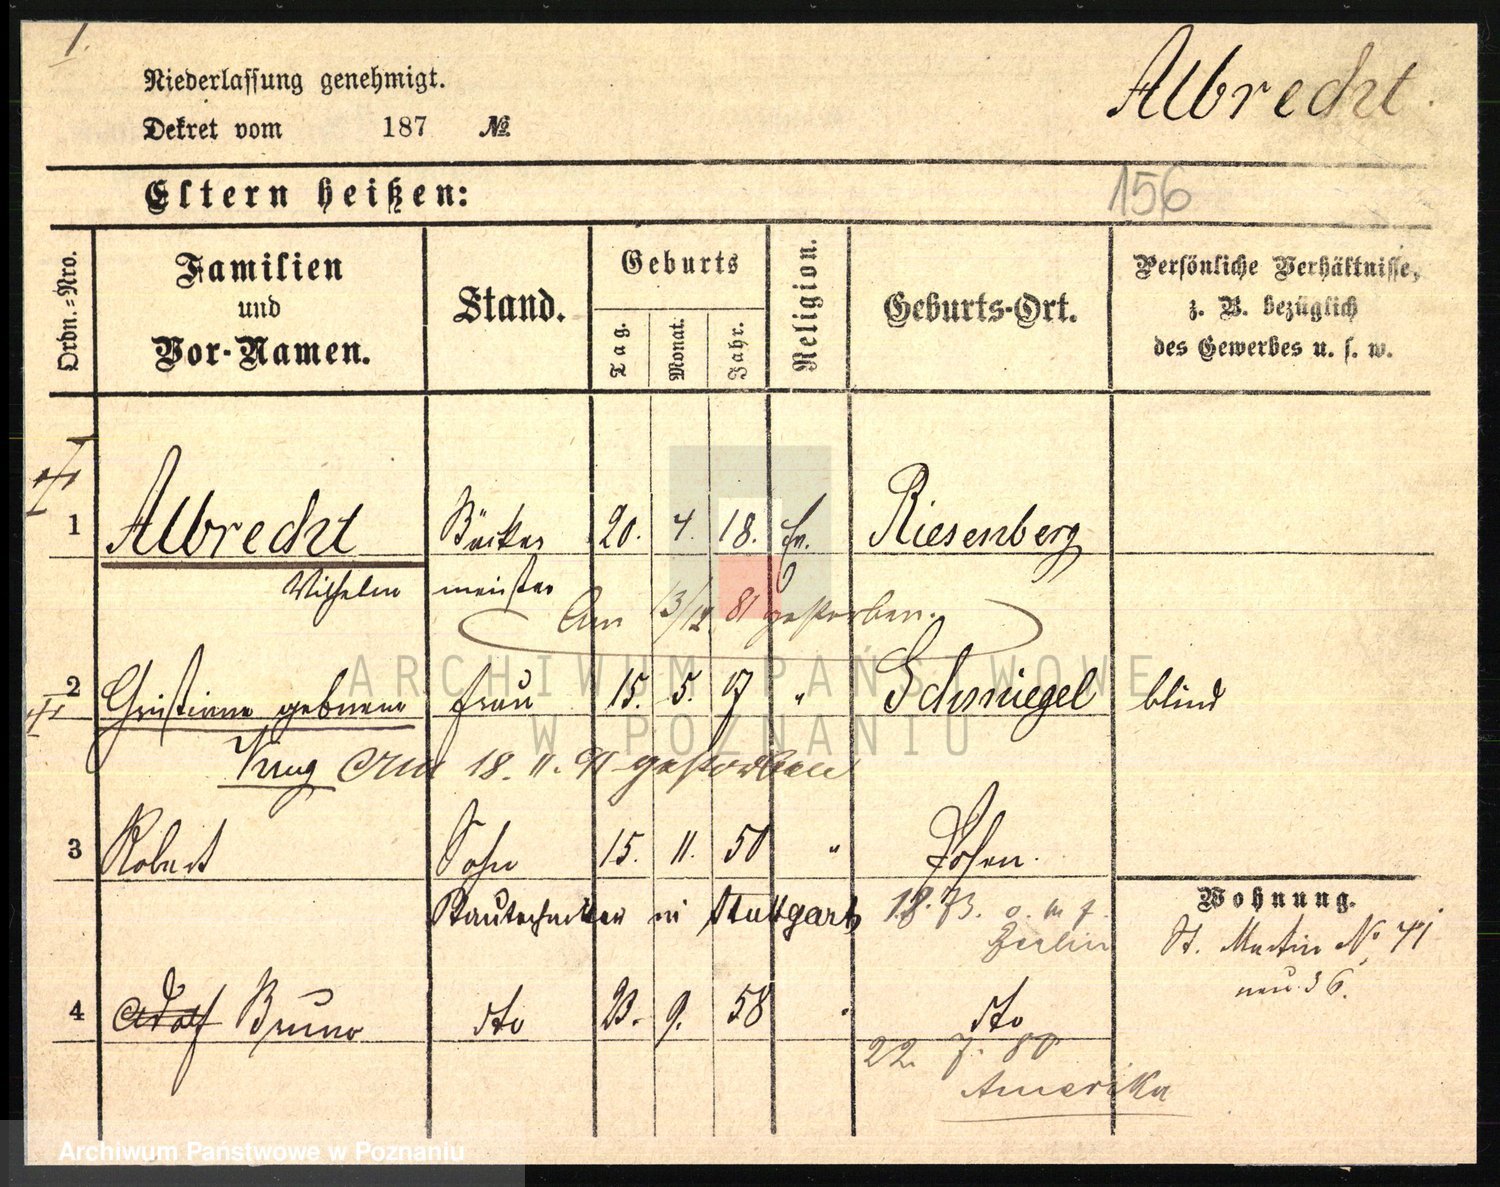 1.
Niederlassung genehmigt.
Dekret vom 187 №
Albrecht.
Eltern heißen:
156
Ordn.=Nro.
Familien
und
Vor-Namen.
Stand.
Geburts
Tag.
Monat.
Jahr.
Religion.
Geburts-Ort.
Persönliche Verhältnisse,
z. B. bezüglich
des Gewerbes u. s. w.
1 Albrecht Bäcker 20. 4. 18. Ev. Riesenberg
Wilhelm meister
Am 13/12 81 gestorben.
2 Christiane geborene Frau 15. 5. 17 " Schmiegel blind
Krug Am 18. 11. 91 gestorben
3 Robert Sohn 15. 11. 50 " Posen.
Bautechniker in Stuttgart 18. 73.
Berlin
Wohnung.
St. Martin No 41
neu 36.
4 Adolf Bruno dto 23. 9. 58 " dto
22. 7. 80
Amerika
ARCHIWUM PAŃSTWOWE
W POZNANIU
Archiwum Państwowe w Poznaniu